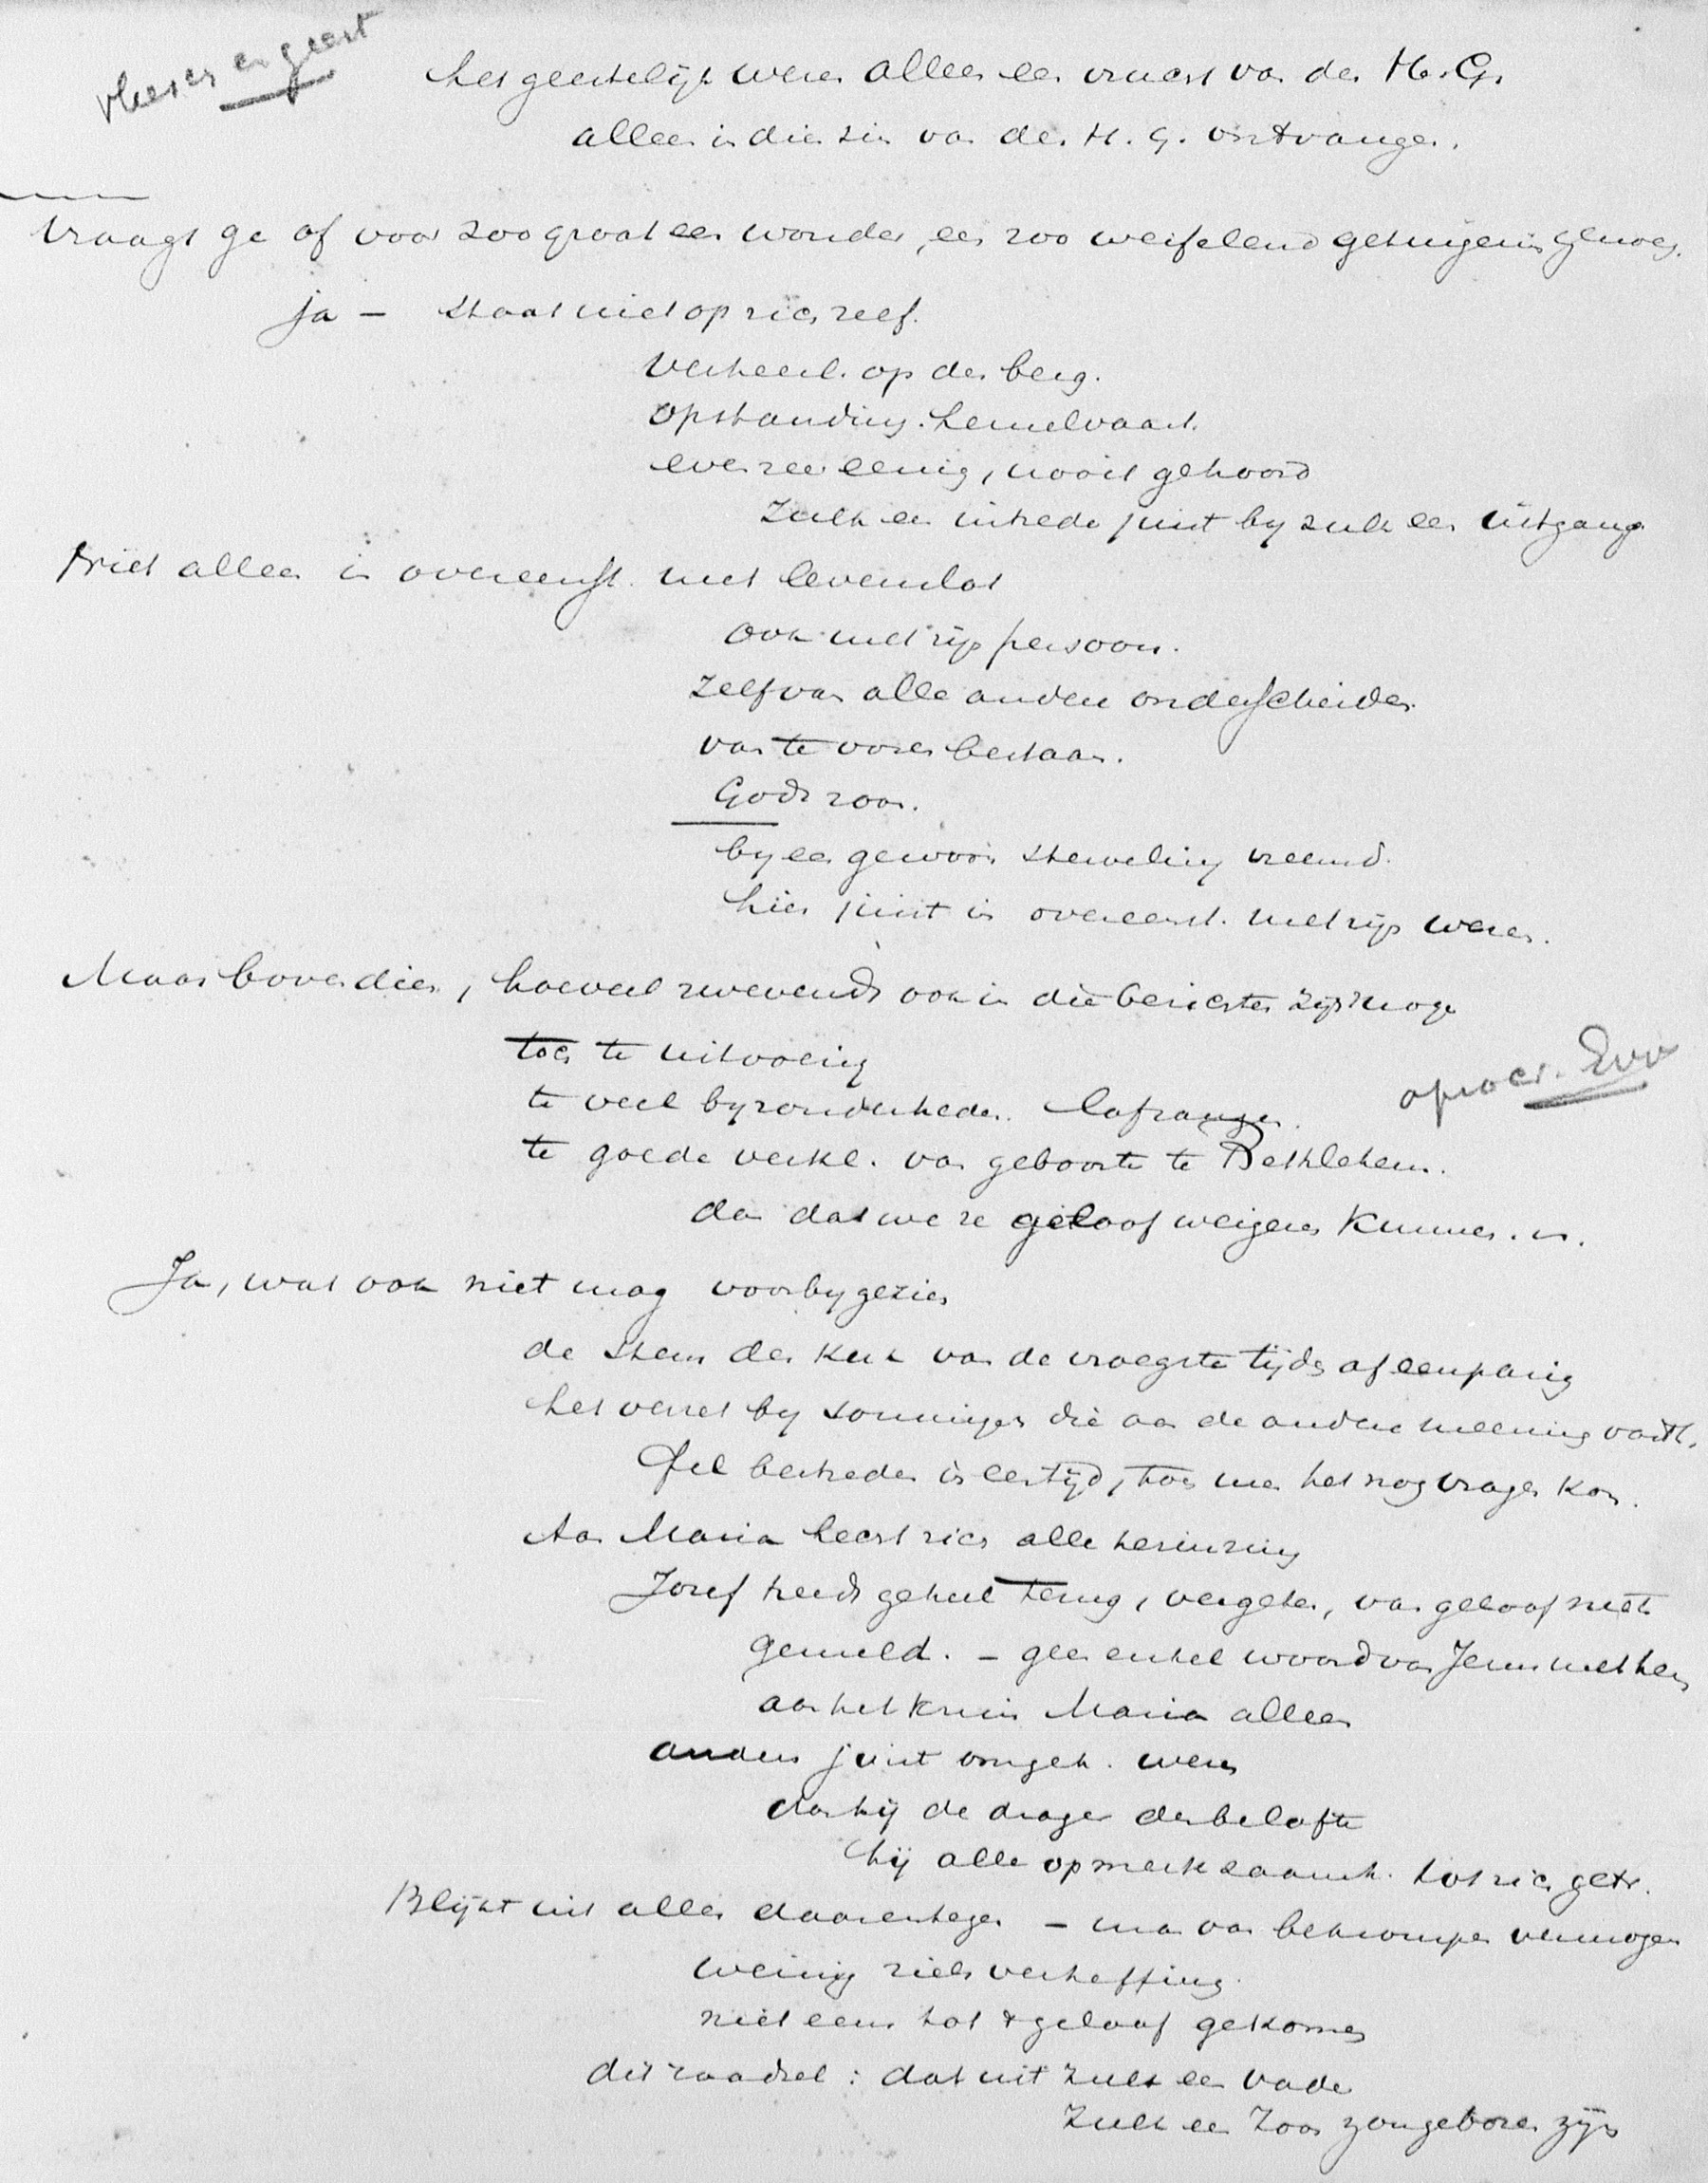 vleesch en geest
het geestelijk wezen alleen een vrucht van den H. G.
alleen in dien zin van den H. G. ontvangen.
Vraagt ge of voor zoo groot een wonder, een zoo weifelend getuigenis genoeg.
ja — staat niet op zich zelf.
Verheerl. op den berg.
Opstanding. hemelvaart.
evenzeer eenig, nooit gehoord
Zulk een intrede juist by zulk een uitgang
Niet alleen in overeenst. met levenslot
ook met zijn persoon.
Zelf van alle anderen onderscheiden
van te voren bestaan.
Gods zoon.
by een gewoon sterveling vreemd.
hier juist in overeenst. met zijn wezen.
Maar bovendien, hoeveel zwevends ook in die berichten zijn moge
toch te uitvoerig
te veel byzonderheden. lofzangen.
apocr. Evv
te goede verkl. van geboorte te Bethlehem.
dan dat we ze geloof weigeren kunnen.
Ja, wat ook niet mag voorbygezien
de stem der kerk van de vroegste tijden af eenparig
het verzet by sommigen die aan de andere meening vasth.
Fel bestreden in eertijd, toen men het nog vragen kon.
Aan Maria hecht zich alle herinnering
Jozef treedt geheel terug, vergeten, van geloof niets
gemeld. — geen enkel woord van Jezus met hem
aan het kruis Maria alleen
anders juist omgek. wezen
dan hij de drager der belofte
hij alle opmerkzaamh. tot zich getr.
Blijkt uit alles daarentegen — man van bekrompen vermogen
weinig zielsverheffing.
niet eens tot geloof gekomen
dit raadsel: dat uit zulk een vader
Zulk een Zoon zou geboren zijn